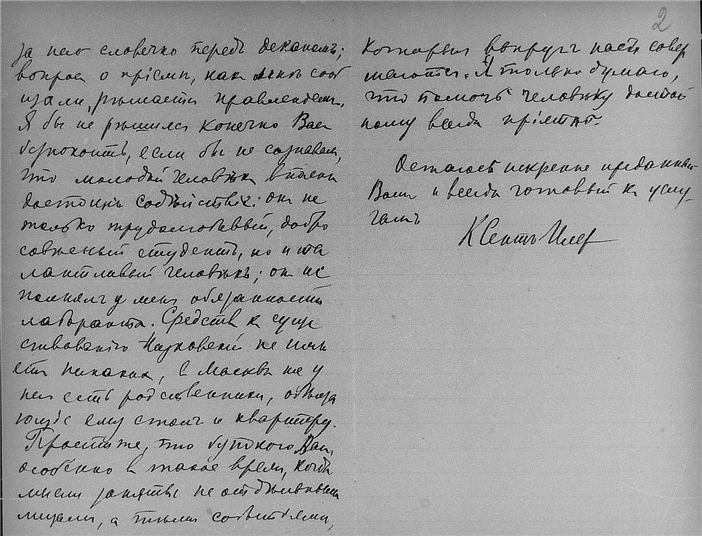 за него словечко передъ деканомъ;
вопросъ о пріемѣ, какъ мнѣ сооб
щали, рѣшается правленіемъ.
Я бы не рѣшился конечно Васъ
безпокоить, если бы не сознавалъ,
что молодой человѣкъ вполнѣ
достоинъ содѣйствія: онъ не
только трудолюбивый, добро
совѣстный студентъ, но и та
лантливый человѣкъ; онъ ис
полнялъ у меня обязанности
лаборанта. Средствъ къ суще
ствованію не имѣ
етъ никакихъ, въ Москвѣ же у
него есть родственники,
ему столъ и квартиру.
Простите, что безпокою Васъ,
особенно въ такое время, когда
мысли заняты не отдѣльными
лицами, а тѣми событіями,
2
которыя вокругъ насъ совер
шаются. Я только думаю,
что помочь человѣку достой
ному всегда пріятно.
Остаюсь искренне преданный
Вамъ и всегда готовый къ услу
гамъ
К Сентъ-Илер